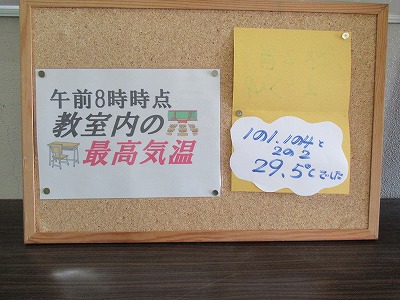 午前8時時点
教室内の
最高気温
1の1.1の4と
2の2
29.5℃でした